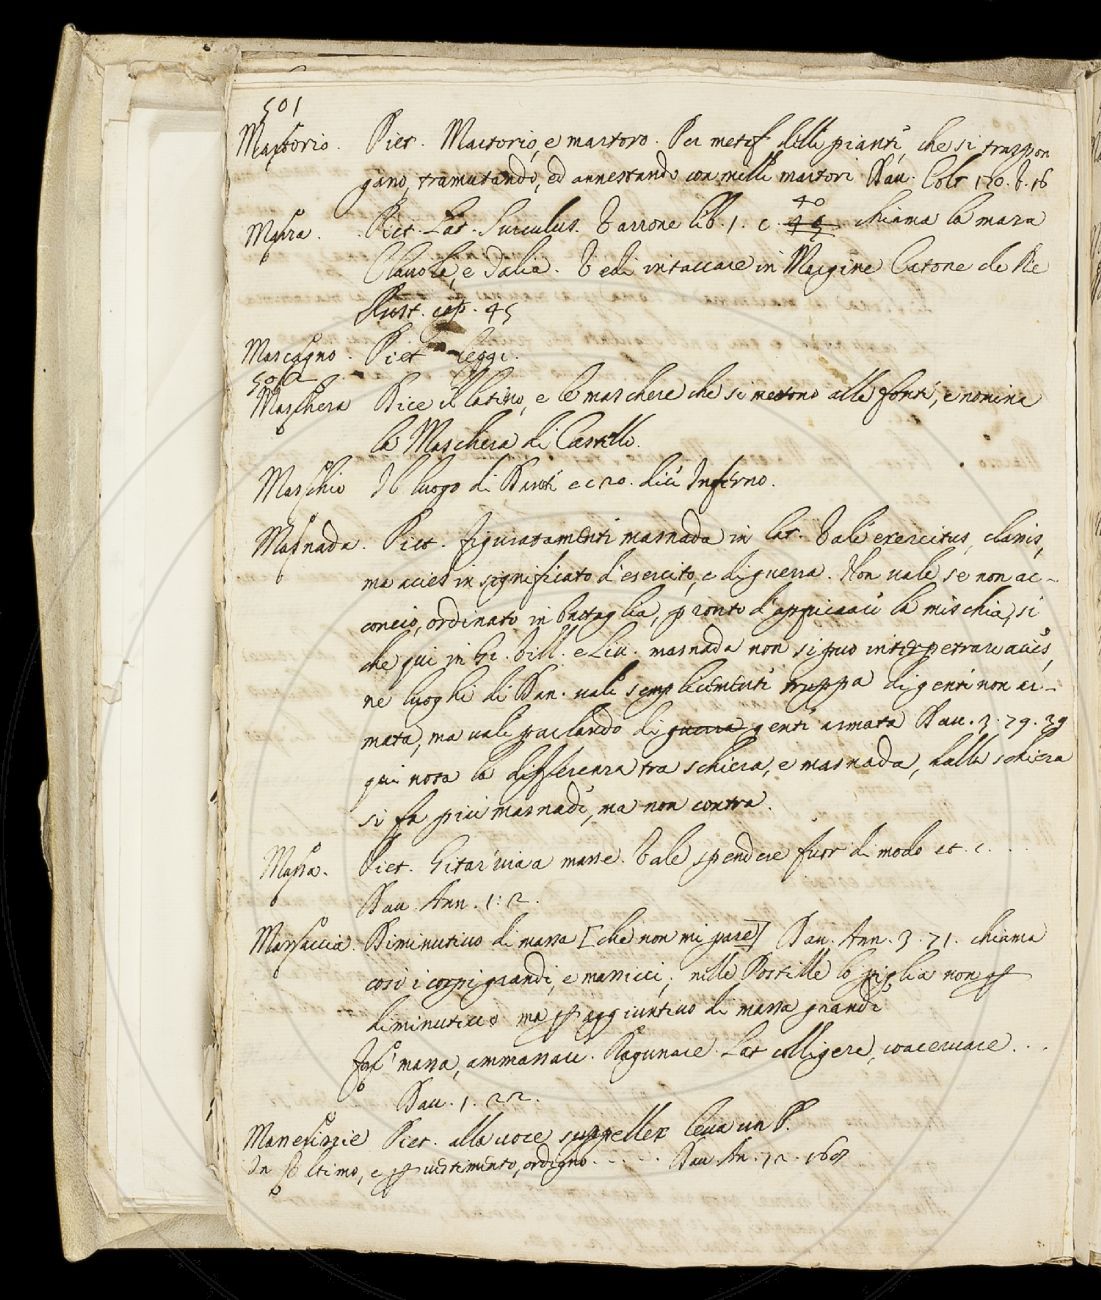 501
Martorio. Piet. Martorio, e martoro. Per metaf. delle pianti, che si traspon
gano, tramutando, ed annestando con mille martori Dav. Colt 180. b. 16
Mazza. Piet. Lat. Surculus. Varrone lib. 1. c. 40 45 chiama la mazza
Clavola, e Talia. Vedi intaccare in Margine Catone de Re
Rust. cap. 45
Mascagno. Piet leggi.
501
Maschera Dice il latino, e le maschere che si mettono alle fonti, e nomina
la Maschera di Castello.
Maschio Il luogo di Dante e c 20. dell' Inferno.
Masnada. Piet. figuratamenti masnada in lat. Vale exercitus, classis,
ma acies in significato d'esercito, e di guerra. Non vale se non ac-
concio, ordinato in battaglia, pronto d'appiccare la mischia, si
che qui in Gi. Vill. e Liv. masnada non si puo interpetrare acies,
ne luoghi di Dan. vale semplicementi truppa di genti non ar-
mata, ma vale parlando di guerra genti armata Dav. 3. 79. 39
qui nota la differenza tra schiera, e masnada, dalla schiera
si fa piu masnadi, ma non contra.
Massa. Piet. Gitar via a masse. Vale spendere fuor di modo et. c. . . .
Dav. Ann. 1: 2.
Massaccia. Diminutivo di massa [che non mi pare] Dav. Ann. 3. 71. chiama
cosi i corpi grandi, e massicci; nelle Postille lo piglia non p
diminutivo ma p aggiuntivo di massa grandi
Far massa, ammassare. Ragunare Lat colligere, coacervare. . .
Dav. 1. 22.
Masserizie Piet. alla voce suppellex leva un P.
In ultimo, e p vestimento, ordigno. . . . . Dav An. 12. 160